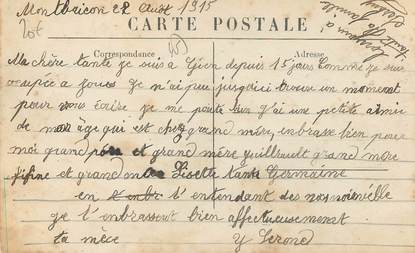 Montbricon 22 Aout 1915
20f
CARTE POSTALE
Correspondance
Adresse
Ma chère tante je suis a Gien depuis 15 jours Comme je suis
occupée a jouer je n'ai pu jusqu'ici trouver un moment
pour vous écrire je me porte bien j'ai une petite amie
de mon âge qui est chez grand mère, enbrasse bien pour
moi grand père et grand mère Guillrault grand mère
fifine et grand Lisette tante Germaine
en l'entendant des nos nouvelle
je t'enbrassent bien affectueusement
ta nièce Y Lerond